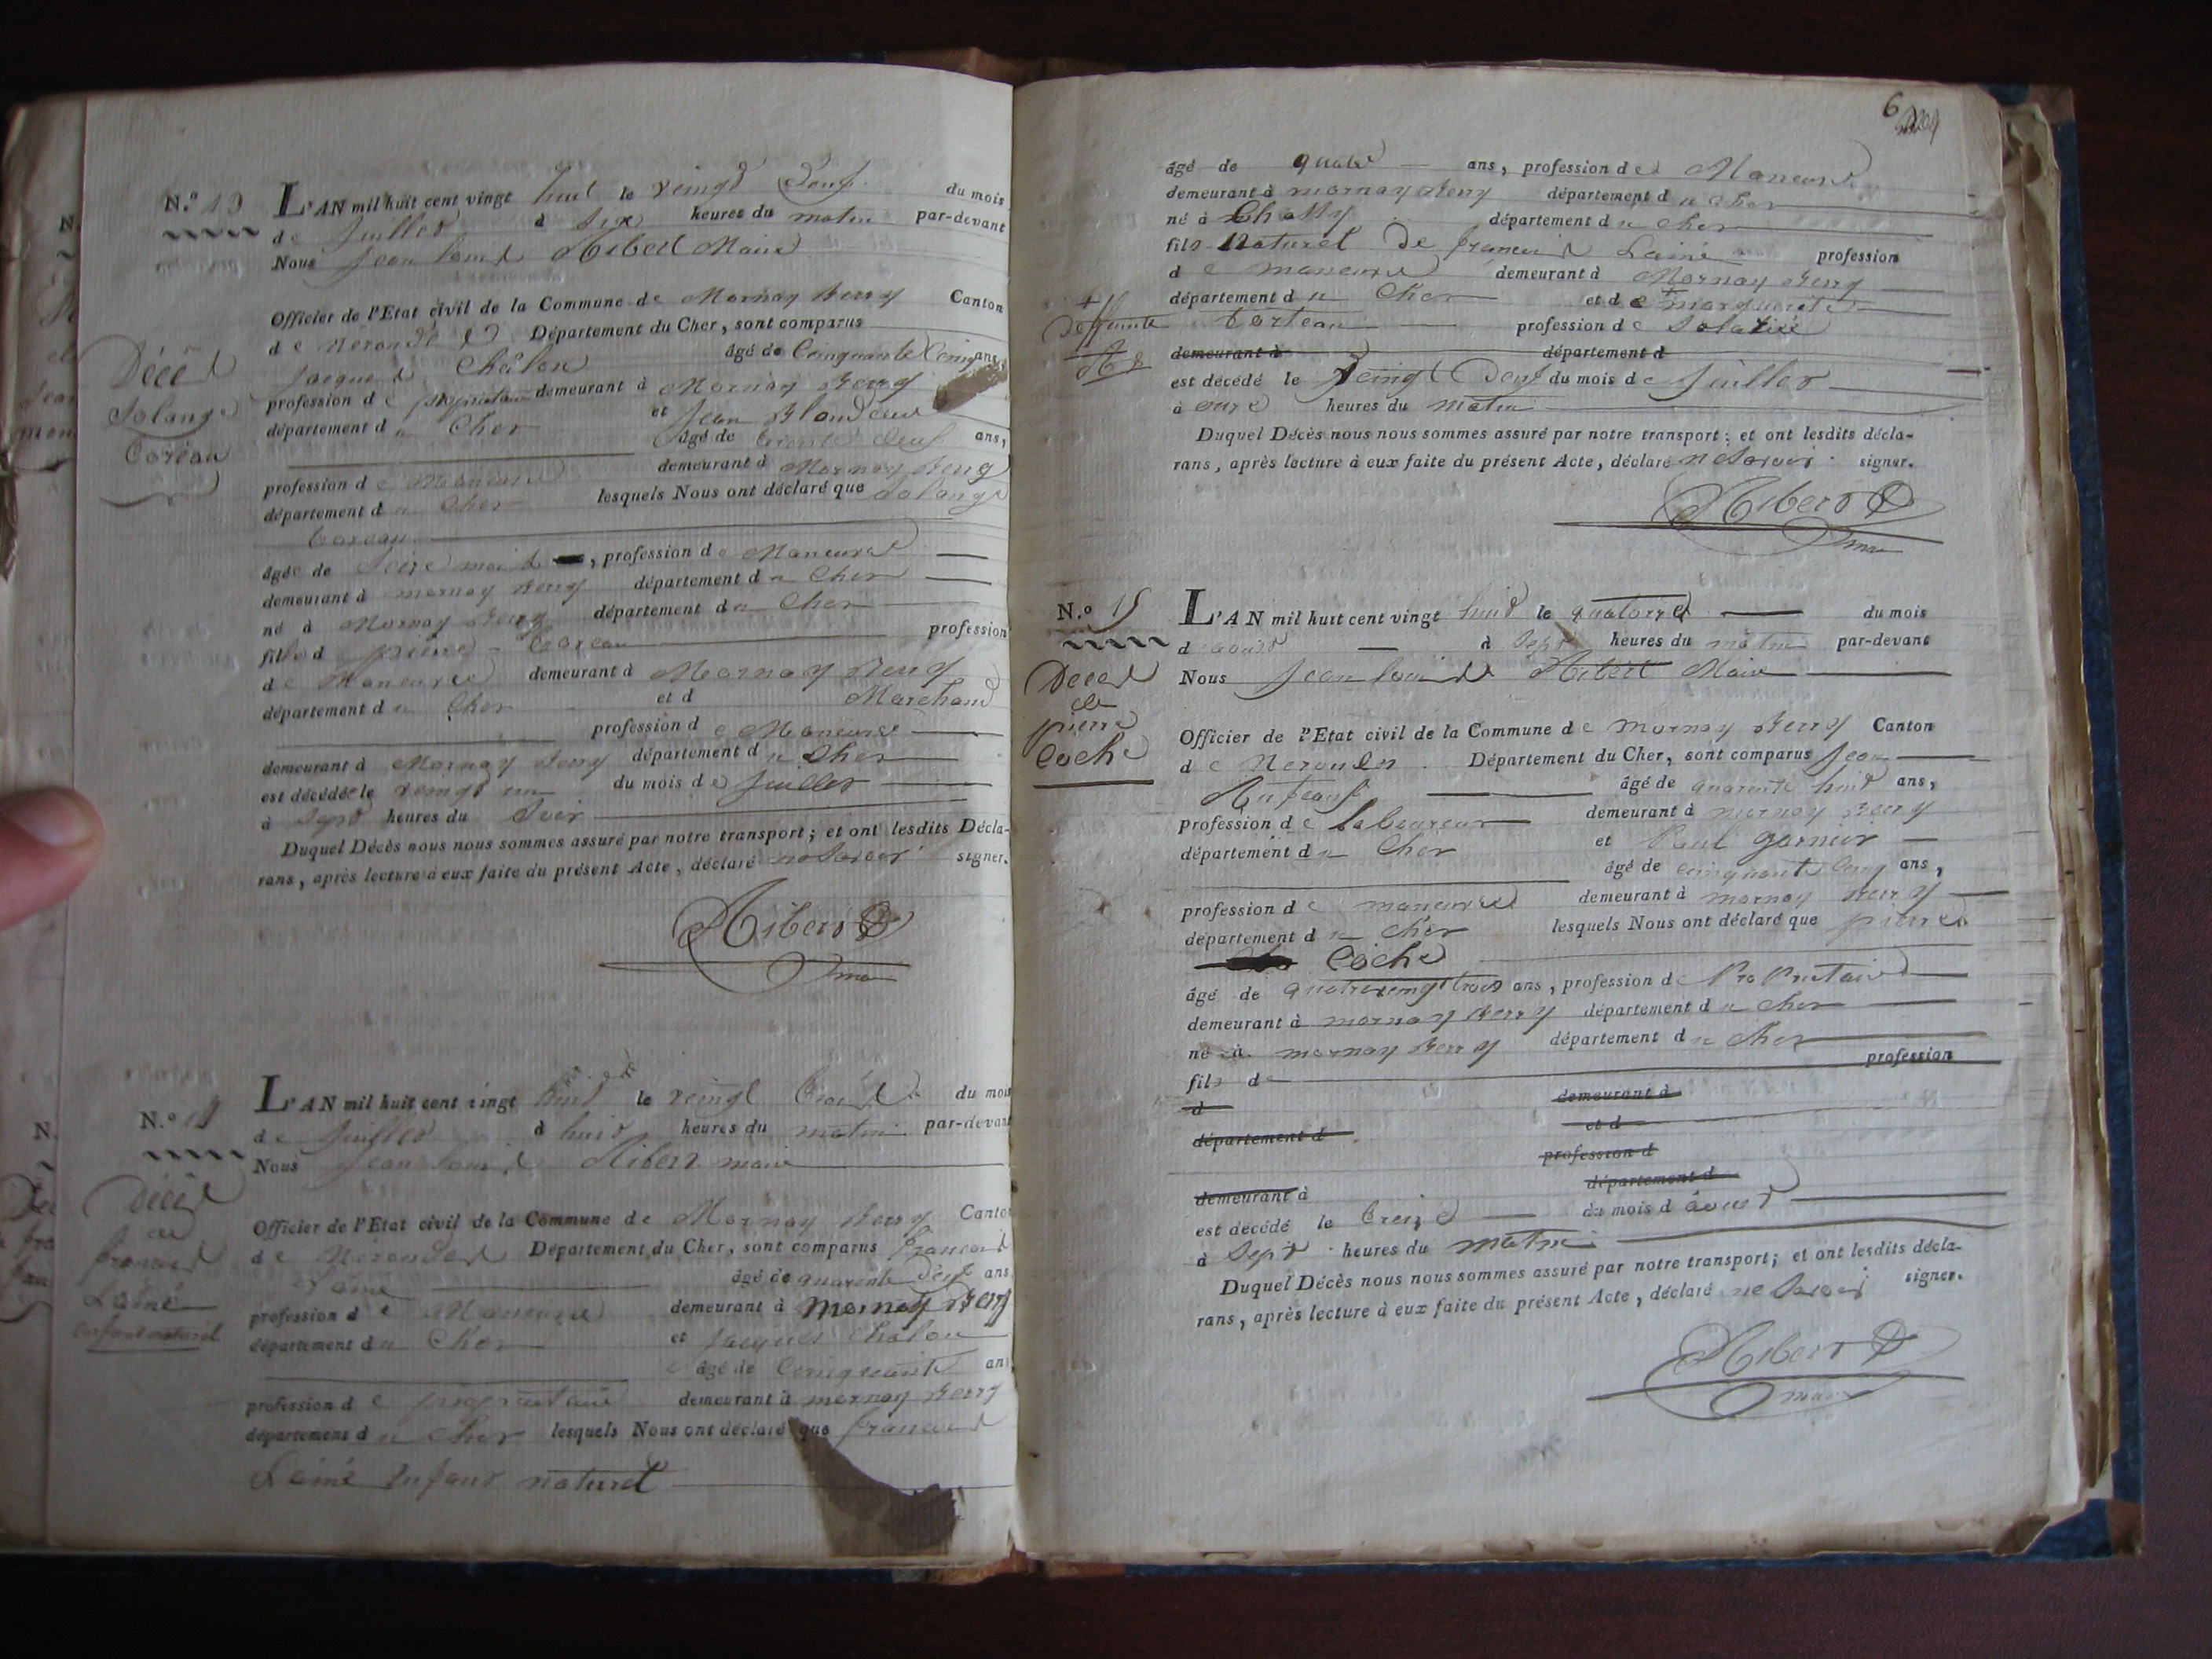 N.° 13
L'AN mil huit cent vingt huit le vingt deux du mois
de juillet à six heures du matin par-devant
Nous jean louis Ribert Maire
Officier de l'Etat civil de la Commune de Mornay Berry Canton
de nerondes Département du Cher, sont comparus
Décès
Solange
Coreau
jacques Châlon âgé de Cinquante Cinq ans
profession de propriétaire demeurant à Mornay Berry
département du Cher et jean Blondeau
âgé de trente deux ans,
profession de Maneuvre demeurant à Mornay Berry
département du Cher lesquels Nous ont déclaré que Solange
Coreau
âgée de seize mois, profession de Maneuvre
demeurant à mornay Berry département du Cher
né à Mornay Berry département du Cher
fille de pierre Coreau profession
de Maneuvre demeurant à Mornay Berry
département du Cher et d Marchand
profession de Maneuvre
demeurant à Mornay Berry département du Cher
est décédée le vingt un du mois de juillet
à sept heures du soir
Duquel Décès nous nous sommes assuré par notre transport; et ont lesdits Décla-
rans, après lecture à eux faite du présent Acte, déclaré ne savoir signer.
Ribert
N.° 14
L'AN mil huit cent vingt huit le vingt trois du mois
de juillet à huit heures du matin par-devant
Nous jean louis Ribert maire
Décès
de
francois
Lainé
enfant naturel
Officier de l'Etat civil de la Commune de Mornay Berry Canton
de Nerondes Département du Cher, sont comparus francois
Lainé âgé de quarante deux ans
profession de Maneuvre demeurant à Mornay Berry
département du Cher et jacques Chalon
âgé de Cinquante ans
profession de propriétaire demeurant à mornay Berry
département du Cher lesquels Nous ont déclaré que francois
Lainé Enfant naturel
6
âgé de quatre ans, profession de Maneuvre
demeurant à mornay Berry département du Cher
né à département du Cher
fils Naturel de francois Lainé profession
de maneuvre demeurant à Mornay Berry
département du Cher et de + marguerite
+ deffunte
torteau profession de
demeurant à département d
est décédé le vingt deux du mois de juillet
à onze heures du matin
Duquel Décès nous nous sommes assuré par notre transport; et ont lesdits décla-
rans, après lecture à eux faite du présent Acte, déclaré ne savoir signer.
Ribert
N.° 15
L'AN mil huit cent vingt huit le quatorze du mois
d août à sept heures du matin par-devant
Nous jean louis Ribert Maire
Décès
de
pierre
Coche
Officier de l'Etat civil de la Commune de mornay Berry Canton
de Nerondes Département du Cher, sont comparus jean
âgé de quarante huit ans,
profession de Laboureur demeurant à mornay Berry
département du Cher et Paul garnier
âgé de cinquante cinq ans,
profession de maneuvre demeurant à mornay Berry
département du Cher lesquels Nous ont déclaré que pierre
Coche
âgé de quatrevingt trois ans, profession de Propriétaire
demeurant à mornay Berry département du Cher
né à mornay Berry département du Cher
fils de profession
d demeurant à
département d et d
profession d
demeurant à département d
est décédé le treize du mois d août
à sept heures du matin
Duquel Décès nous nous sommes assuré par notre transport; et ont lesdits décla-
rans, après lecture à eux faite du présent Acte, déclaré ne savoir signer.
Ribert